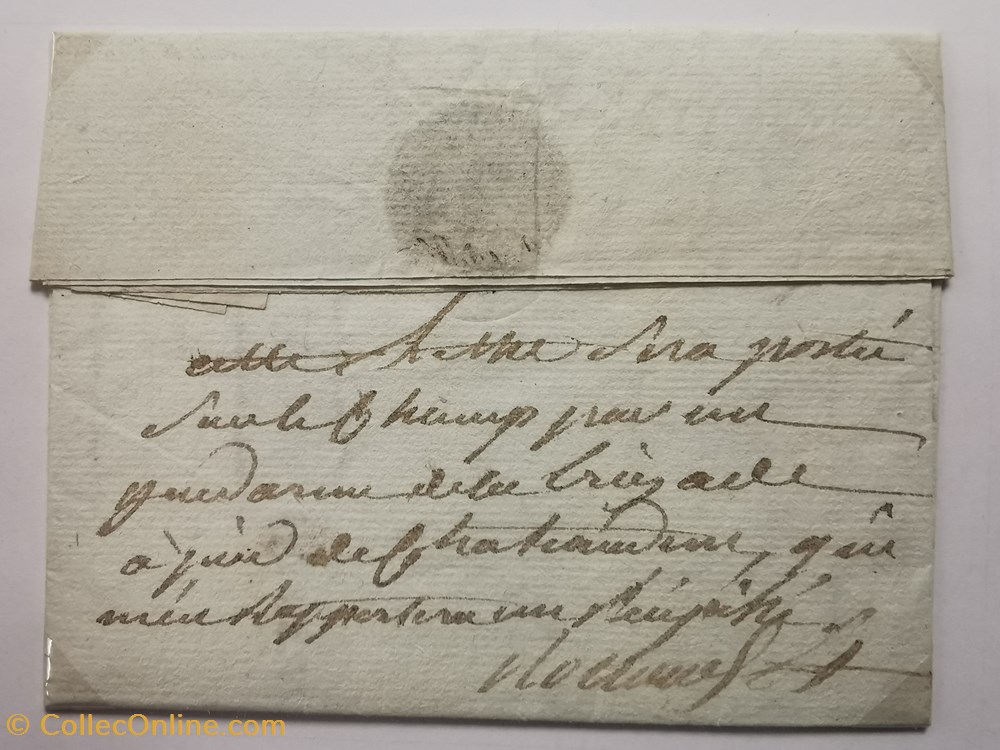 cette Lettre Sera portée
Sur le Champ par un
gendarme de la brigade
à pied de Chateaudun, qui
m'en Rapportera un Récépissé.
© CollecOnline.com